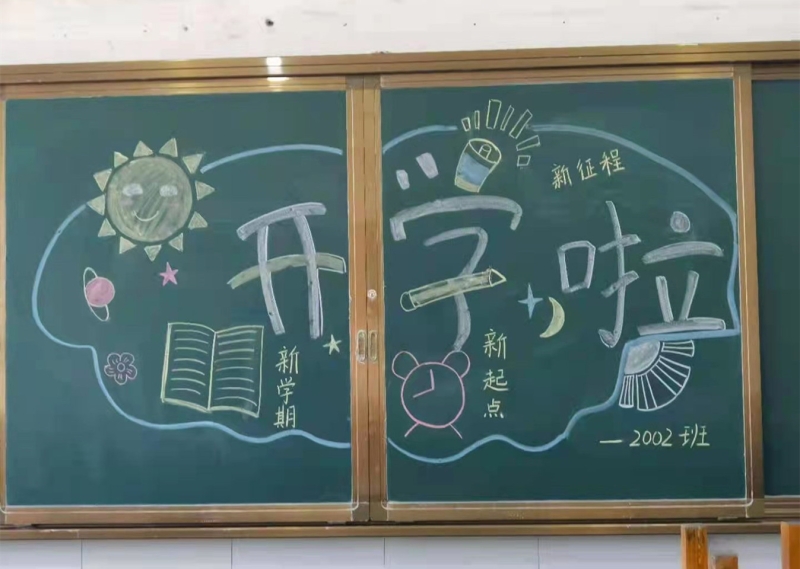 开学啦
新征程
新学期
新起点
—2002班